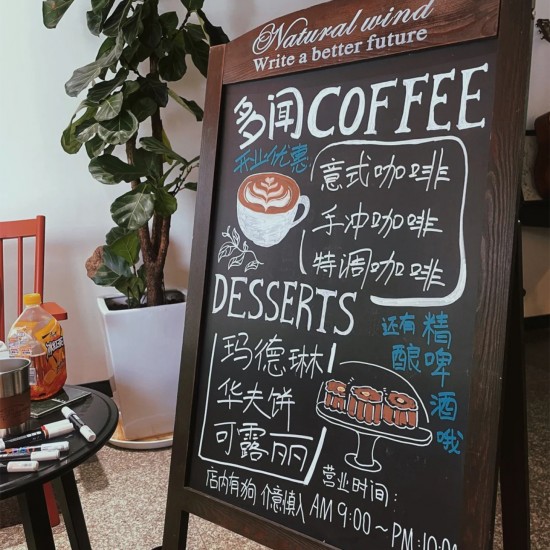 Natural wind
Write a better future
多闻COFFEE
开业优惠
意式咖啡
手冲咖啡
特调咖啡
DESSERTS
玛德琳
华夫饼
可露丽
还有精酿啤酒哦
营业时间：
店内有狗 介意慎入 AM 9:00~PM:10:0